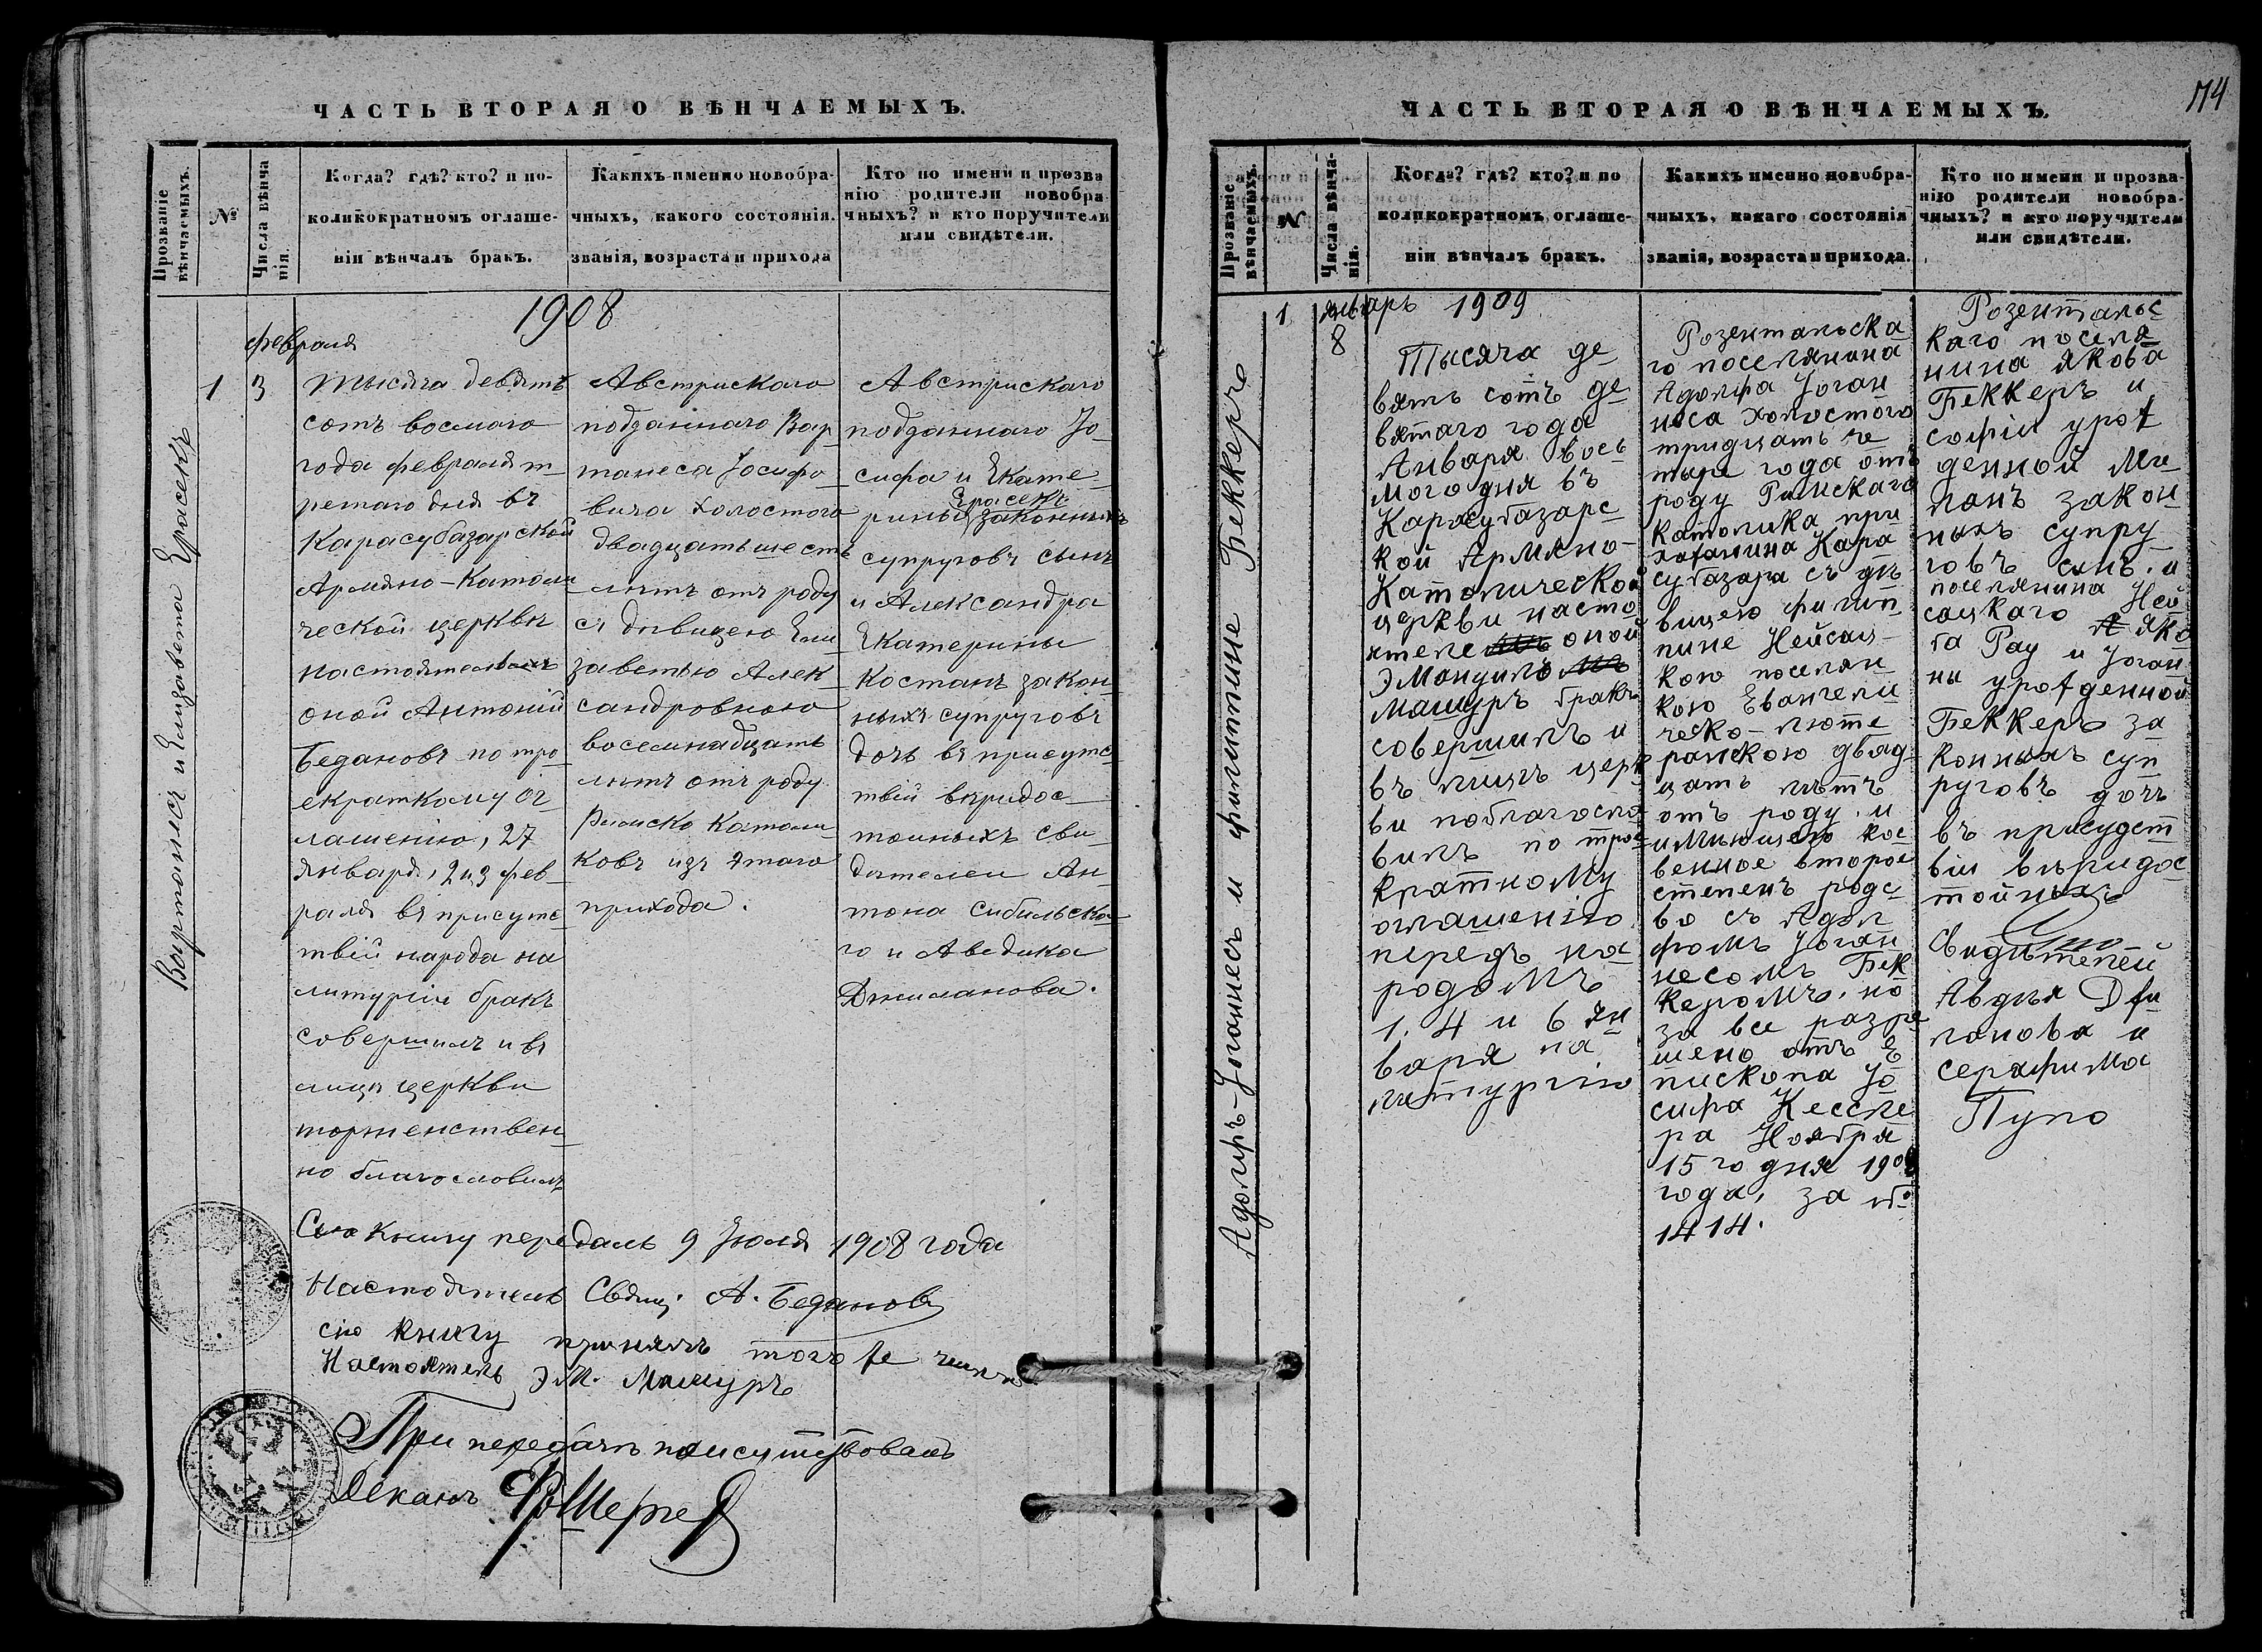 ЧАСТЬ ВТОРАЯ О ВѢНЧАЕМЫХЪ.
Прозваніе вѣнчаемыхъ.
№
Числа вѣнча
нія.
Когда? гдѣ? кто? и по-
коликократномъ оглаше-
ніи вѣнчалъ бракъ.
Какихъ именно новобра-
чныхъ, какого состоянія.
званія, возраста и прихода
Кто по имени и прозва
нію родители новобра
чныхъ? и кто поручители
или свидѣтели.
1908
Вартанесъ и Елизавета Ерасекъ
1
Февраля
3
Тысяча девять
сотъ восмаго
года февраля т-
ретаго дня въ
Карасубазарской
Армяно-Католи
ческой церкви
настоятель
оной Антоній
Бедановъ по тро
екраткому ог
лашенію, 27
января, 2 и 3 фев-
раля въ присутс
твіи народа на
литургіи бракъ
совершилъ и въ
лицѣ церкви
торженствен-
но благословилъ
Австрискаго
подданнаго Вар
танеса Іосифо
вича холостого
двадцать шесть
лѣтъ отъ роду
съ дѣвицею Ели
заветою Алек-
сандровною
восемнадцать
лѣтъ отъ роду
Римско Католи
ковъ изъ этаго
прихода.
Австрискаго
подданнаго Іо-
сифа и Екате-
рины Ерасекъ законныхъ
супруговъ сынъ
и Александра
Екатерины
Костанъ закон-
ныхъ супруговъ
дочь въ присутс-
твіи вѣридос-
тойныхъ сви-
дѣтелей Ан-
тона Сибильска-
го и Аведика
Джиланова.
Сію книгу передалъ 9 Іюля 1908 года
Настоятель Свящ. А. Бедановъ
сію книгу принялъ того же числа
Настоятель Э.М. Машуръ
При передачѣ присутствовалъ
Деканъ
174
ЧАСТЬ ВТОРАЯ О ВѢНЧАЕМЫХЪ.
Прозваніе вѣнчаемыхъ.
№
Числа вѣнча-
нія.
Когда? гдѣ? кто? и по
коликократномъ оглаше-
ніи вѣнчалъ бракъ.
Какихъ именно новобра-
чныхъ, какаго состоянія
званія, возраста и прихода.
Кто по имени и прозва-
нію родители новобра-
чныхъ? и кто поручители
или свидѣтели.
Адолфъ-Іоганнесъ и Филиппине Беккеръ
1
январь 1909
8
Тысяча де
вять сотъ де
вятаго года
Января вось
мого дня въ
Карасубазарс
кой Армяно-
Католической
церкви насто
ятель оной
Эмануилъ
Машуръ бракъ
совершилъ и
въ лицѣ церк
ви поблагосло
вилъ по трое
кратному
оглашенію
передъ на
родомъ
1. 4 и 6 Ян
варя на
литургію
Розентальска
го поселянина
Адолфа Іоган
неса холостого
тридцать че
тыре года отъ
роду Римскаго
католика при
хожанина Кара
субазара съ дѣ
вицею Филип
пине Нейсац-
кою поселян
кою Евангели
ческо-люте
ранскою двад
цать лѣтъ
отъ роду. и
имѣющего кос
венное второе
степень родс
во съ Адол
фомъ Іоган
несомъ Бек
керомъ, но
за все разре
шено отъ Е
пископа Іо
сифа Кессле
ра Ноября
15го дня 1908
года, за №.
1414.
Розентальс
каго поселя
нина Якова
Беккеръ и
софіи урож
денной Ми
ланъ закон
ныхъ супру
говъ сынъ. и
поселянина Ней
сацкаго Яко
ба Рау и Іоган
ны урожденной
Беккеръ за
конныхъ суп
руговъ дочь
въ присудст
віи вѣридос
тойныхъ
Свидѣтелей
Авдѣя Джи
ланова и
серафима
Пупо